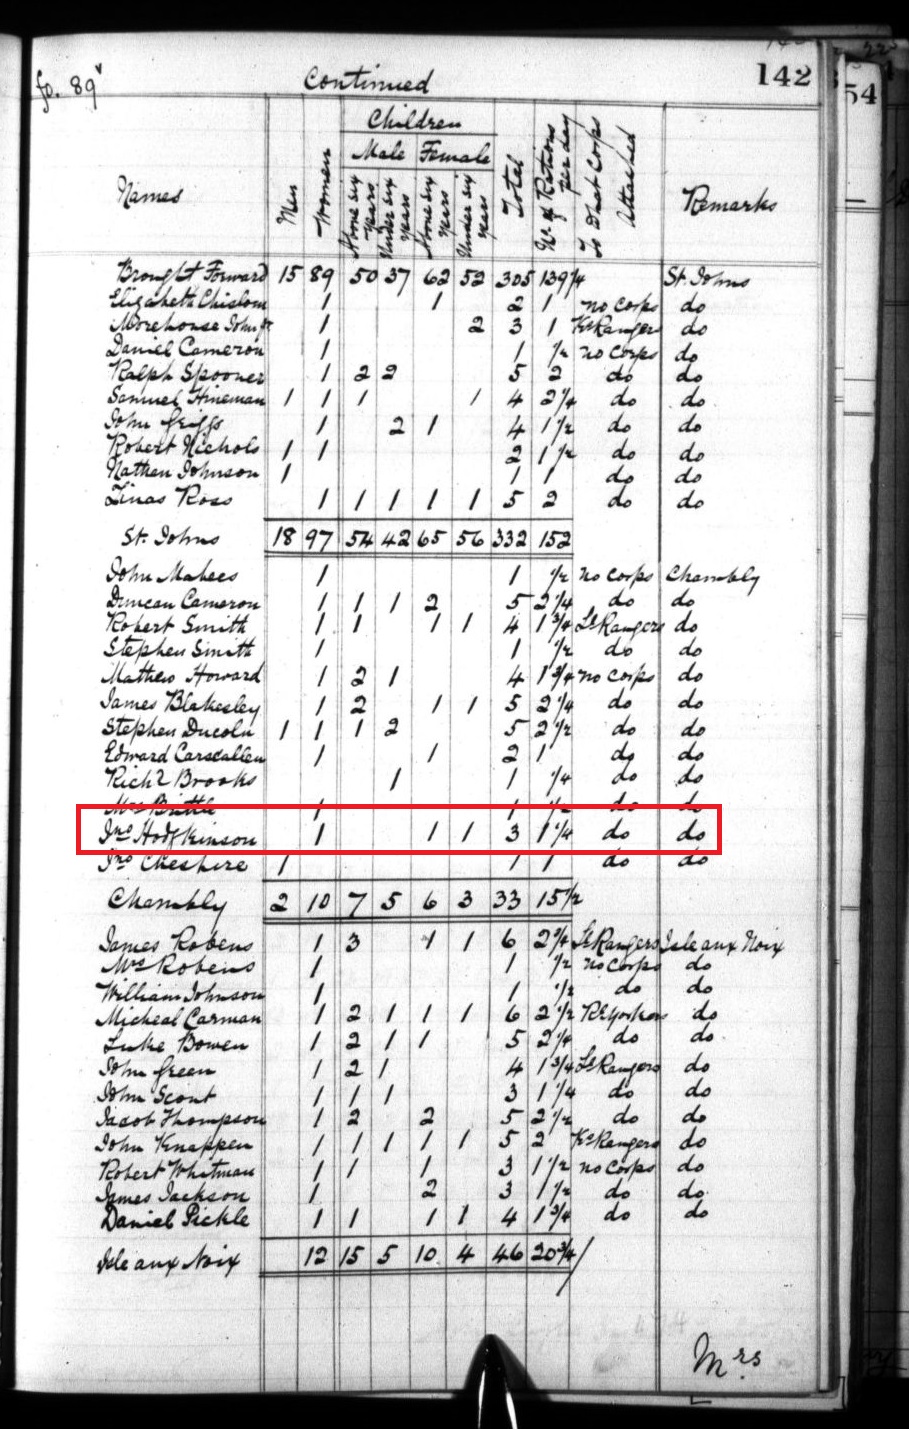 fo. 89v
Continued
142
54
Names
Men
Women
Children
Male
Female
Above six years
Under six years
Above six years
Under six years
Total
No. of Rations per day
To What Corps Attached
Remarks
Brought Forward 15 89 50 37 62 52 305 139 1/4 St. Johns
Elizabeth Chislom 1 1 2 1 no corps do
Morehouse John Jr 1 2 3 1 Ks Rangers do
Daniel Cameron 1 1 1/2 no corps do
Ralph Spooner 1 2 2 5 2 do do
Samuel Hineman 1 1 1 1 4 2 1/4 do do
John Griggs 1 2 1 4 1 1/2 do do
Robert Nichols 1 1 2 1 1/2 do do
Nathen Johnson 1 1 1 do do
Zinas Ross 1 1 1 1 1 5 2 do do
St. Johns 18 97 54 42 65 56 332 152
John Mabees 1 1 1/2 no corps Chambly
Duncan Cameron 1 1 1 2 5 2 1/4 do do
Robert Smith 1 1 1 1 4 1 3/4 Ls Rangers do
Stephen Smith 1 1 1/2 do do
Mathew Howard 1 2 1 4 1 3/4 no corps do
James Blakesley 1 2 1 1 5 2 1/4 do do
Stephen Ducoln 1 1 1 2 5 2 1/2 do do
Edward Carscallen 1 1 2 1 do do
Richd Brooks 1 1 1/4 do do
Mrs Buttle 1 1 1/2 do do
Jno Hodgkinson 1 1 1 3 1 1/4 do do
Jno Cheshire 1 1 1 do do
Chambly 2 10 7 5 6 3 33 15 1/2
James Robens 1 3 1 1 6 2 3/4 Ls Rangers Isle aux Noix
Mrs Robens 1 1 1/2 no corps do
William Johnson 1 1 1/2 do do
Micheal Carman 1 2 1 1 1 6 2 1/2 RlYorkers do
Luke Bowen 1 2 1 1 5 2 1/4 do do
John Green 1 2 1 4 1 3/4 Ls Rangers do
John Scout 1 1 1 3 1 1/4 do do
Jacob Thompson 1 2 2 5 2 1/2 do do
John Knappen 1 1 1 1 1 5 2 Ks Rangers do
Robert Whitman 1 1 1 3 1 1/2 no corps do
James Jackson 1 2 3 1 1/2 do do
Daniel Pickle 1 1 1 1 4 1 3/4 do do
Isle aux Noix 12 15 5 10 4 46 20 3/4
Mrs